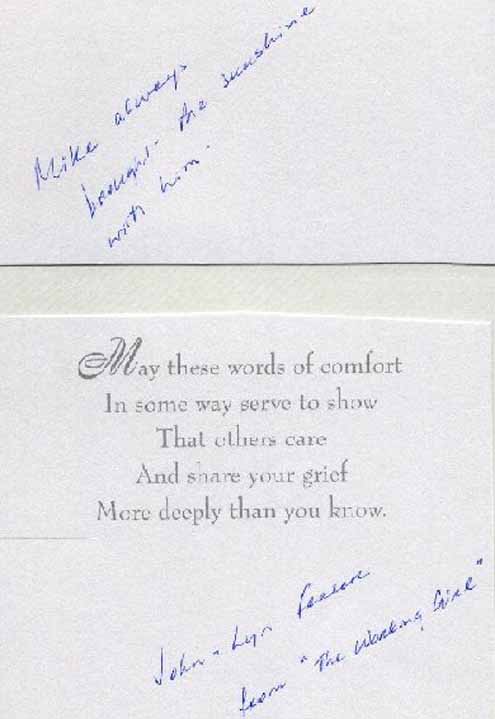 Mike always
brought the sunshine
with him.
May these words of comfort
In some way serve to show
That others care
And share your grief
More deeply than you know.
John & Lyn
from "The Working Girl"